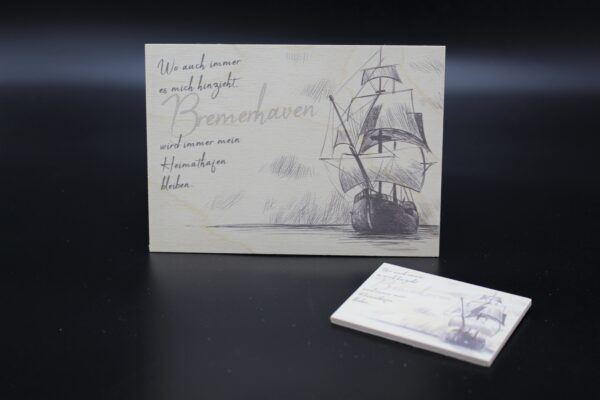 Wo auch immer
es mich hinzieht.
Bremerhaven
wird immer mein
Heimathafen
bleiben.
Bremerhaven